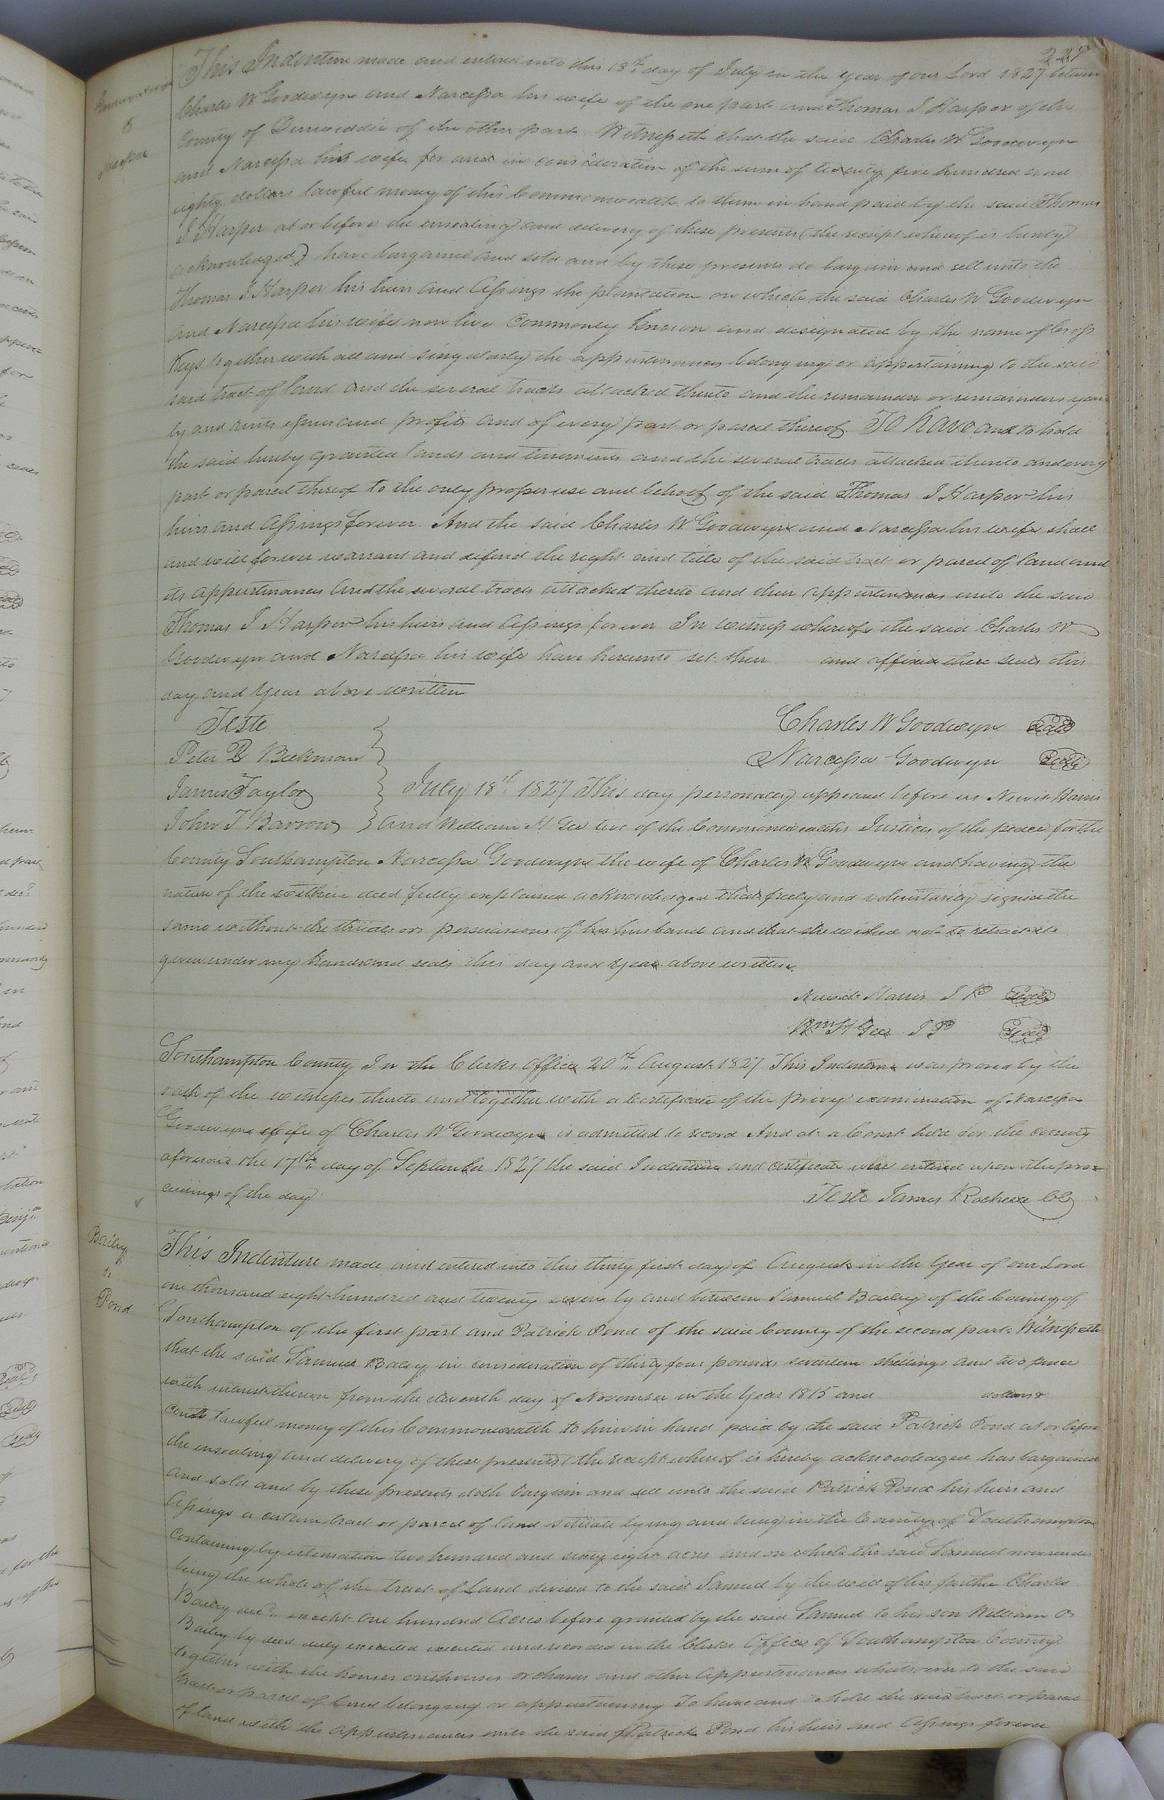 This Indenture made and entered into this 18th day of July in the year of our Lord 1827 between
Charles W Goodwyn and Narcissa his wife of the one part and Thomas J Harper of the
County of Dinwiddie of the other part Witnesseth that the said Charles W Goodwyn
and Narcissa his wife for and in consideration of the sum of twenty five hundred and
eighty dollars lawful money of this Commonwealth to them in hand paid by the said Thomas
J Harper at or before the ensealing and delivery of these presents (the receipt whereof is hereby
acknowledged) have bargained and sold and by these presents do bargain and sell unto the
Thomas J Harper his heirs and assings the plantation on which the said Charles W Goodwyn
and Narcissa his wife now live commonly known and designated by the name of Cross
Keys together with all and singularly the appurtenances belonging or appertaining to the said
said tract of land and the several tracts attached thereto and the remainder or remainders year
ly and rents issues and profits and of every part or parcel thereof To have and to hold
the said hereby granted lands and tenements and the several tracts attached thereto and every
part or parcel thereof to the only proper use and behoof of the said Thomas J Harper his
heirs and assings forever And the said Charles W Goodwyn and Narcissa his wife shall
and will forever warrant and defend the right and title of the said tract or parcel of land and
its appurtenances and the several tracts attached thereto and their appurtenances unto the said
Thomas J Harper his heirs and assings forever In witness whereof the said Charles W
Goodwyn and Narcissa his wife have hereunto set their and affixed there seals this
day and year above written
Teste
Charles W Goodwyn Seal
Peter B Beekman
Narcissa Goodwyn Seal
James Taylor
July 18th 1827 This day personally appeared before us Harris
John T Barrow
and William H Gee two of the Commonwealths Justices of the peace for the
County Southampton Narcissa Goodwyn the wife of Charles W Goodwyn and having the
nature of the within deed fully explained acknowledged that freely and voluntarily signed the
same without the threats or persuasions of her husband and that she wished not to retract it
given under any hands and seals this day and year above written
Harris J P Seal
Wm H Gee J P Seal
Southampton County In the Clerks office 20th August 1827 This Indenture was proved by the
oath of the witnesses thereto and together with a certificate of the privy examination of Narcissa
Goodwyn wife of Charles W Goodwyn is admitted to record And at a Court held for the county
aforesaid the 17th day of September 1827 the said Indenture and certificate were entered upon the pro
ceedings of the day
Teste James Rochelle CC
Bailey
to
Pond
This Indenture made and entered into this thirty first day of August in the year of our Lord
one thousand eight hundred and twenty seven by and between Samuel Bailey of the County of
Southampton of the first part and Patrick Pond of the said County of the second part Witnesseth
that the said Samuel Bailey in consideration of thirty four pounds seventeen shillings and two pence
with interest thereon from the eleventh day of November in the year 1815 and dollars
cents lawful money of this Commonwealth to him in hand paid by the said Patrick Pond at or before
the ensealing and delivery of these presents (the receipt whereof is hereby acknowledged has bargained
and sold and by these presents doth bargain and sell unto the said Patrick Pond his heirs and
assings a certain tract or parcel of land situate lying and being in the County of Southampton
containing by estimation two hundred and sixty eight acres and on which the said Samuel now resides
being the whole of the tract of Land devised to the said Samuel by the will of his farther Charles
Bailey decd except one hundred Acres before granted by the said Samuel to his son William
Bailey by deed duly executed executed and recorded in the Clerks Office of Southampton County
together with the houses outhouses orchards and other appurtenances whatsoever to the said
tract or parcel of land belonging or appertaining To have and to hold the said tract or parcel
of land with the appurtenances unto the said Patrick Pond his heirs and assings forever